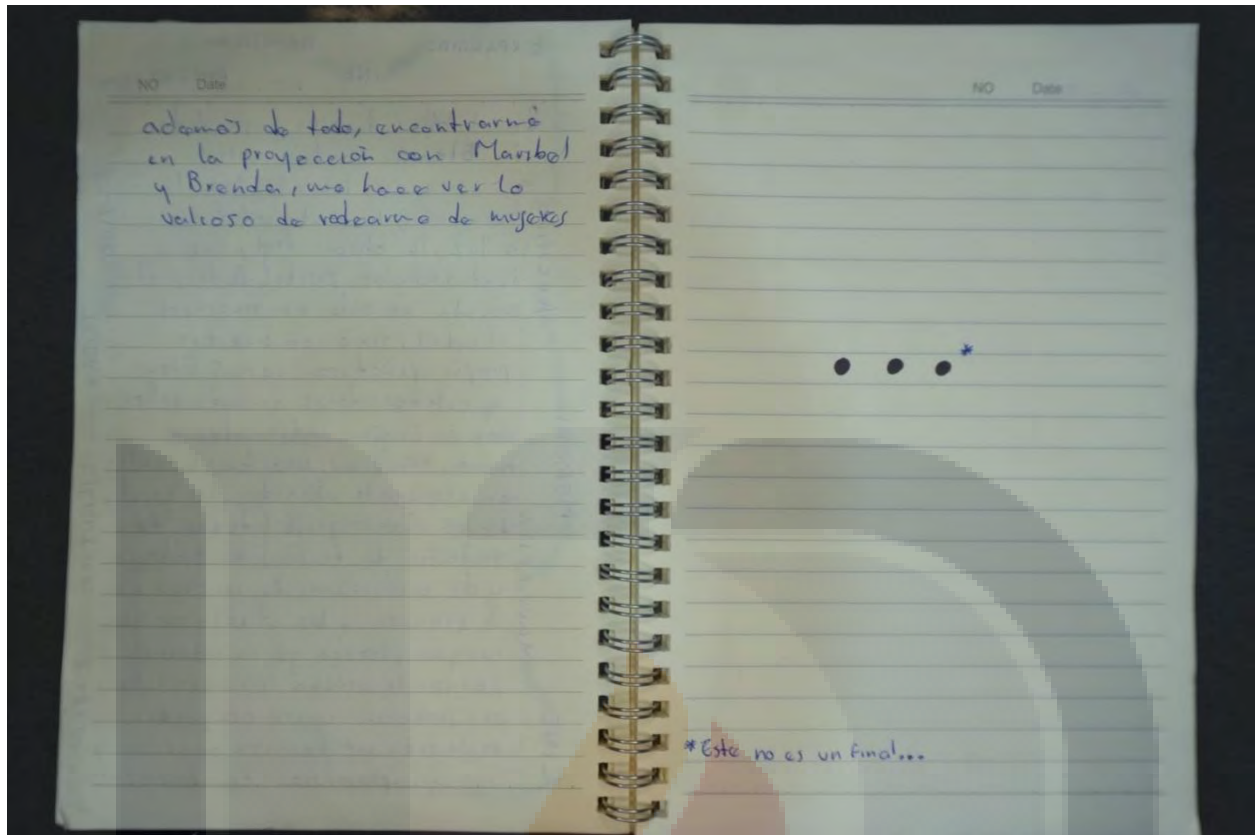 NO Date
además de todo, encontrarme
en la proyección con Maribel
y Brenda, me hace ver lo
valioso de rodearme de mujeres
NO Date
● ● ● *
* Este no es un final...